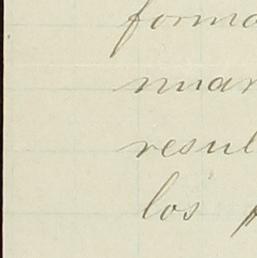 forma
nuar
resul
los